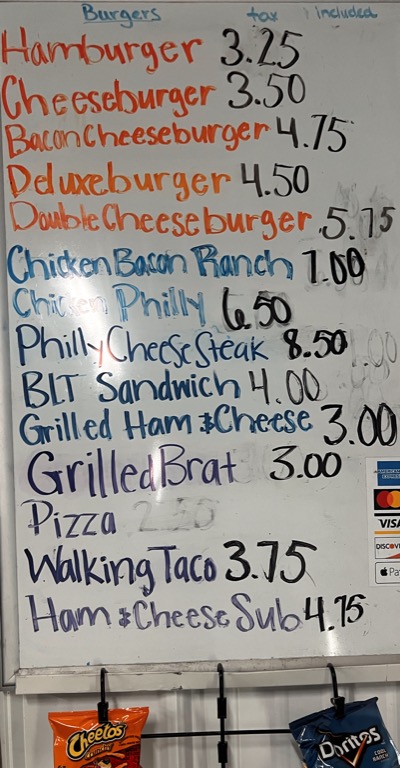 Burgers tax included
Hamburger 3.25
Cheeseburger 3.50
BaconCheeseburger 4.75
Deluxeburger 4.50
DoubleCheeseburger 5.75
Chicken Bacon Ranch 7.00
Chicken Philly 6.50
Philly Cheese Steak 8.50
BLT Sandwich 4.00
Grilled Ham & Cheese 3.00
Grilled Brat 3.00
Pizza 2.50
Walking Taco 3.75
Ham & Cheese Sub 4.75
AMERICAN EXPRESS
VISA
DISCOV
Pay
Cheetos
Crunchy
Doritos
COOL RANCH